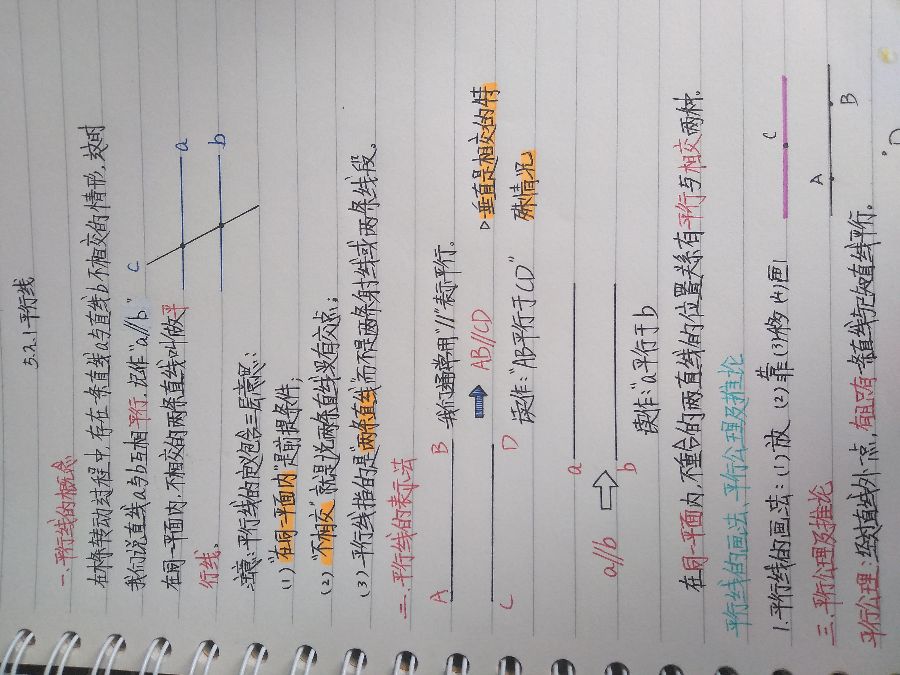 5.2.1平行线
一、平行线的概念
在木棒转动过程中,存在一条直线a与直线b不相交的情形,这时
我们说直线a与b互相平行.记作"a//b"
c
a
b
在同一平面内,不相交的两条直线叫做平
行线。
注意:平行线的定义包含三层意思:
(1)"在同一平面内"是前提条件;
(2)"不相交"就是说两条直线没有交点;
(3)平行线指的是"两条直线"而不是两条射线或两条线段。
二、平行线的表示法
A B 我们通常用"//"表示平行。
AB//CD
C D 读作:"AB平行于CD"
▷垂直是相交的特
殊情况。
a
a//b
b 读作:"a平行于b
在同一平面内,不重合的两直线的位置关系有平行与相交两种.
平行线的画法、平行公理及推论
1.平行线的画法:(1)放 (2)靠 (3)移 (4)画
C
三、平行公理及推论
A B
平行公理:经过直线外一点,有且只有一条直线与已知直线平行。
D